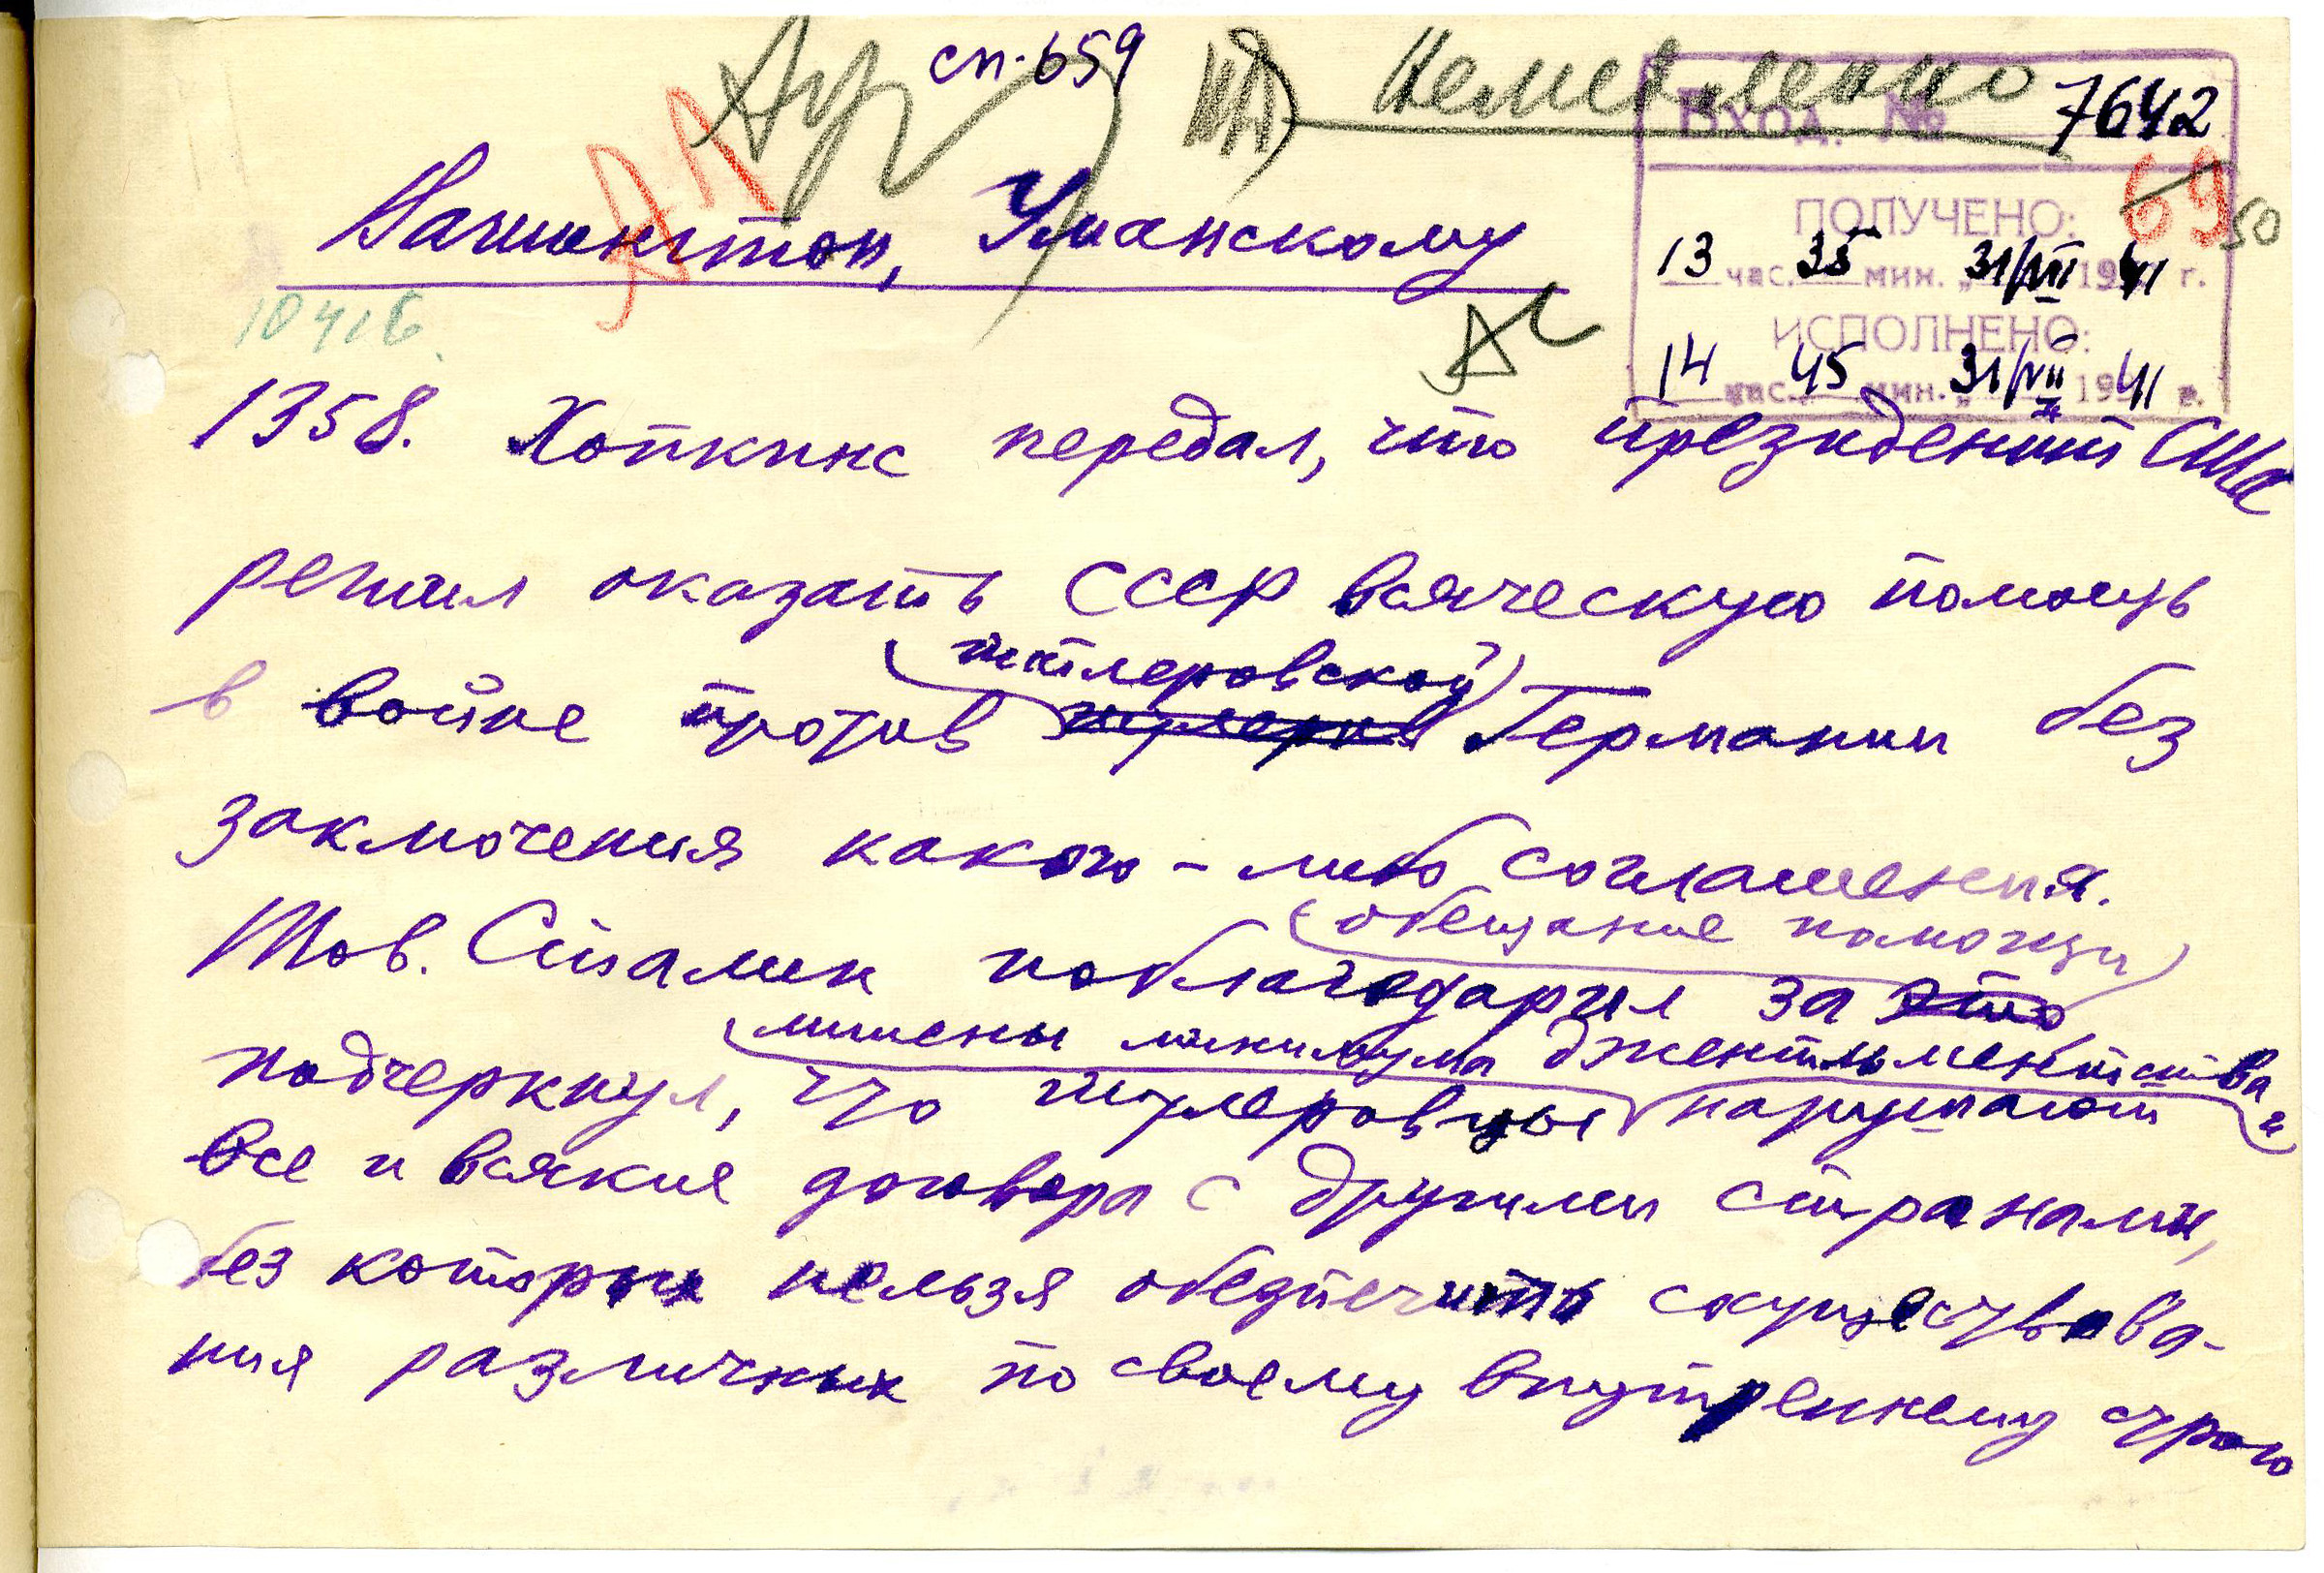 сп. 659
Немедленно
Вход. № 7642
69 50
ПОЛУЧЕНО:
13 час. 35 мин. „31/VII 1941 г.
ИСПОЛНЕНО:
14 час. 45 мин. „31/VII 1941 г.
Вашингтон, Уманскому
10416.
1358. Хопкинс передал, что президент США
решил оказать СССР всяческую помощь
гитлеровской
в войне против Германии без
заключения какого-либо соглашения.
обещание помощи
Тов. Сталин поблагодарил за это,
лишены минимума джентльменства и
подчеркнул, что гитлеровцы нарушают
все и всякие договора с другими странами,
без которых нельзя обеспечить существова-
ния различных по своему внутреннему строю